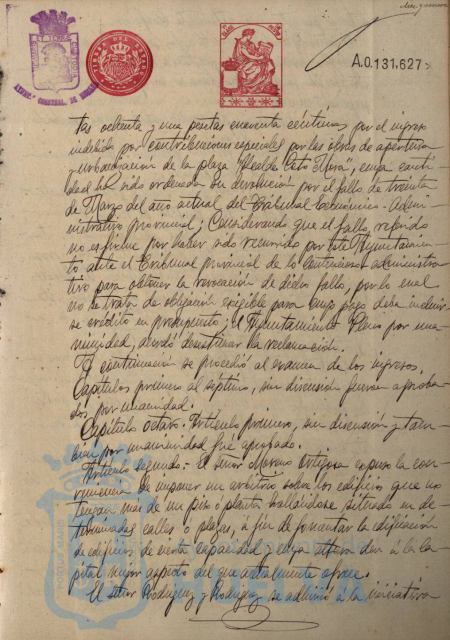 A.0.131,627
tas ochenta y una pesetas cuarenta céntimos por el ingreso
indebido por contribuciones especiales por las obras de apertura
y urbanización de la plaza "Alcalde Soto Mora", cuya canti-
dad ha sido ordenada su devolución por el fallo de treinta
de Marzo del año actual del Tribunal Económico-Admi-
nistrativo provincial; Considerando que el fallo referido
no es firme por haber sido recurrido por este Ayuntamien-
to ante el Tribunal provincial de lo contencioso-administra-
tivo para obtener la revocación de dicho fallo, por lo cual
no se trata de obligación exigible para cuyo pago deba incluir-
se crédito en presupuesto; el Ayuntamiento Pleno por una-
nimidad, acordó desestimar la reclamación.
A continuación se procedió al examen de los ingresos.
Capítulos primero al septimo, sin discusión fueron aproba-
dos por unanimidad.
Capítulo octavo. Artículo primero, sin discusión y tam-
bién por unanimidad fué aprobado.
Artículo segundo.- El señor Moreno Ortigosa expuso la con-
veniencia de imponer un arbitrio sobre los edificios que no
tengan mas de un piso ó planta hallándose situado en de-
terminadas calles o plazas, á fin de fomentar la edificación
de edificios de cierta capacidad y cuya altura den á la Ca-
pital mejor aspecto del que actualmente ofrece.
El señor Rodriguez y Rodriguez se adhirió á la iniciativa